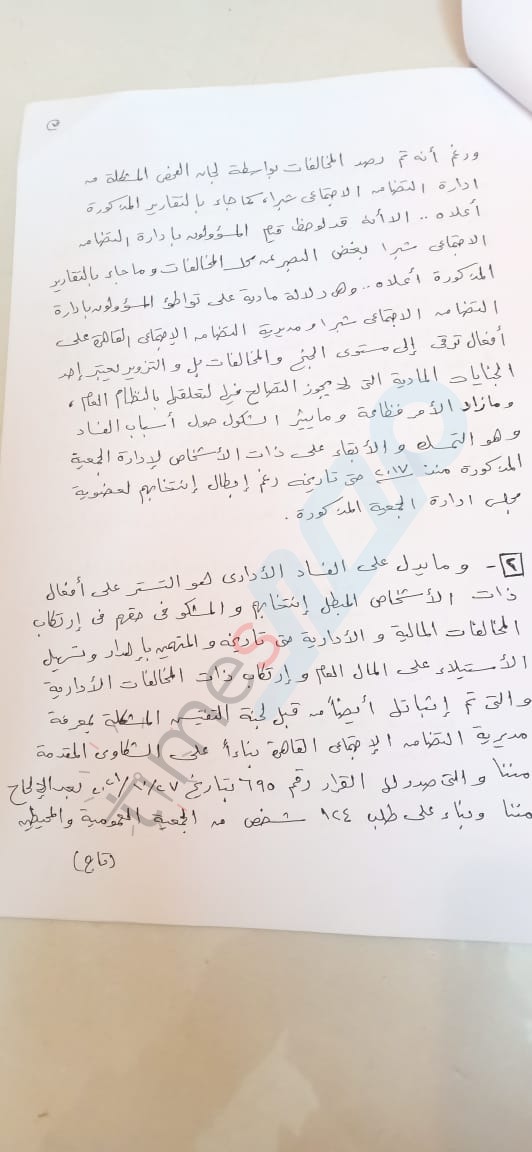 ورغم أنه تم رصد المخالفات بواسطة لجان الفحص المشكلة من
ادارة التضامن الاجتماعى شبرا، كما جاء بالتقارير المذكورة
أعلاه .. الا أنه قد لوحظ قيام المسؤولون بإدارة التضامن
الاجتماعى شبرا بغض البصر عن كل المخالفات وما جاء بالتقارير
المذكورة أعلاه .. وهى دلالة مادية على تواطؤ المسؤولون بادارة
التضامن الاجتماعى شبرا ومديرية التضامن الاجتماعى القاهرة على
أفعال ترقى إلى مستوى الجنح والمخالفات بل والتزوير يعتبر إحد
الجنايات المادية التى لا يجوز التصالح فيها لتعلقها بالنظام العام ،
ومازاد الأمر فظاعة ومايثير الشكوك حول أسباب الفساد
وهو التمسك والأبقاء على ذات الأشخاص لإدارة الجمعية
المذكورة منذ ٢٠١٧ حتى تاريخه رغم إبطال إنتخابهم لعضوية
مجلس ادارة الجمعية المذكورة .
٢ - ومايدل على الفساد الأدارى هو التستر على أفعال
ذات الأشخاص المبطل إنتخابهم والمشكو فى حقهم فى إرتكاب
المخالفات المالية والأدارية حتى تاريخه والمتهمين بإهدار وتسهيل
الأستيلاء على المال العام وإرتكاب ذات المخالفات الأدارية
والتى تم إثباتها أيضاً من قبل لجنة التفتيش المشكلة بمعرفة
مديرية التضامن الإجتماعى القاهرة بناءاً على الشكاوى المقدمة
مننا والتى صدر لها القرار رقم ٦٩٥ بتاريخ بعد الإلحاح
مننا وبناء على طلب ٨٢٤ شخص من الجمعية العمومية والمحيطين
times